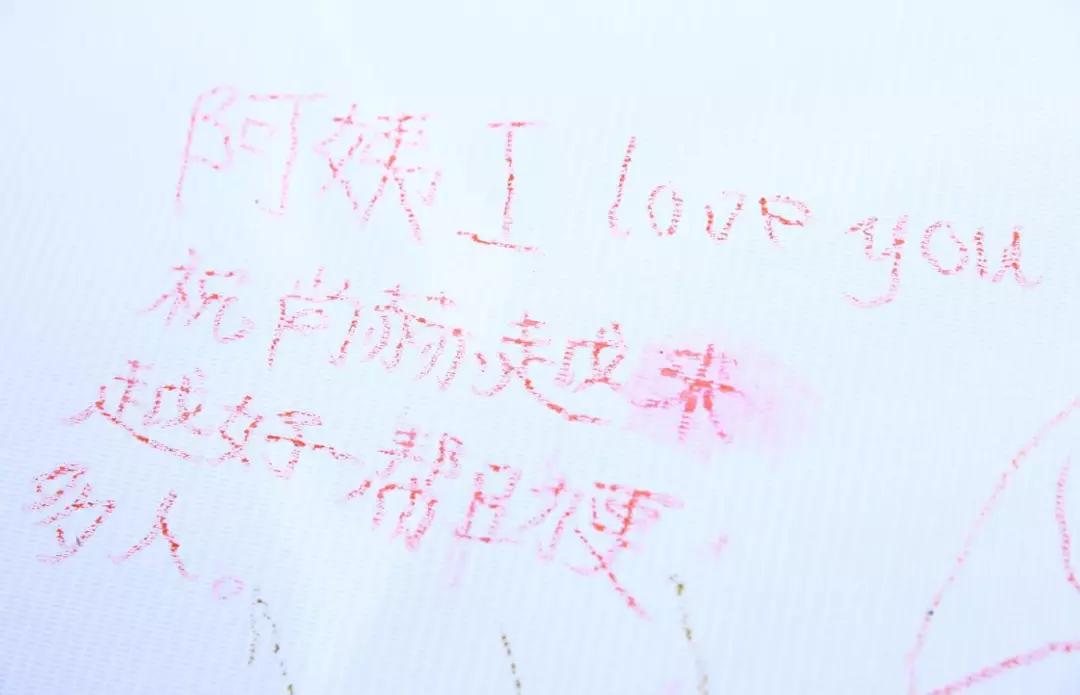 阿姨 I love you
祝尚丽越来
越好帮且更
多人。